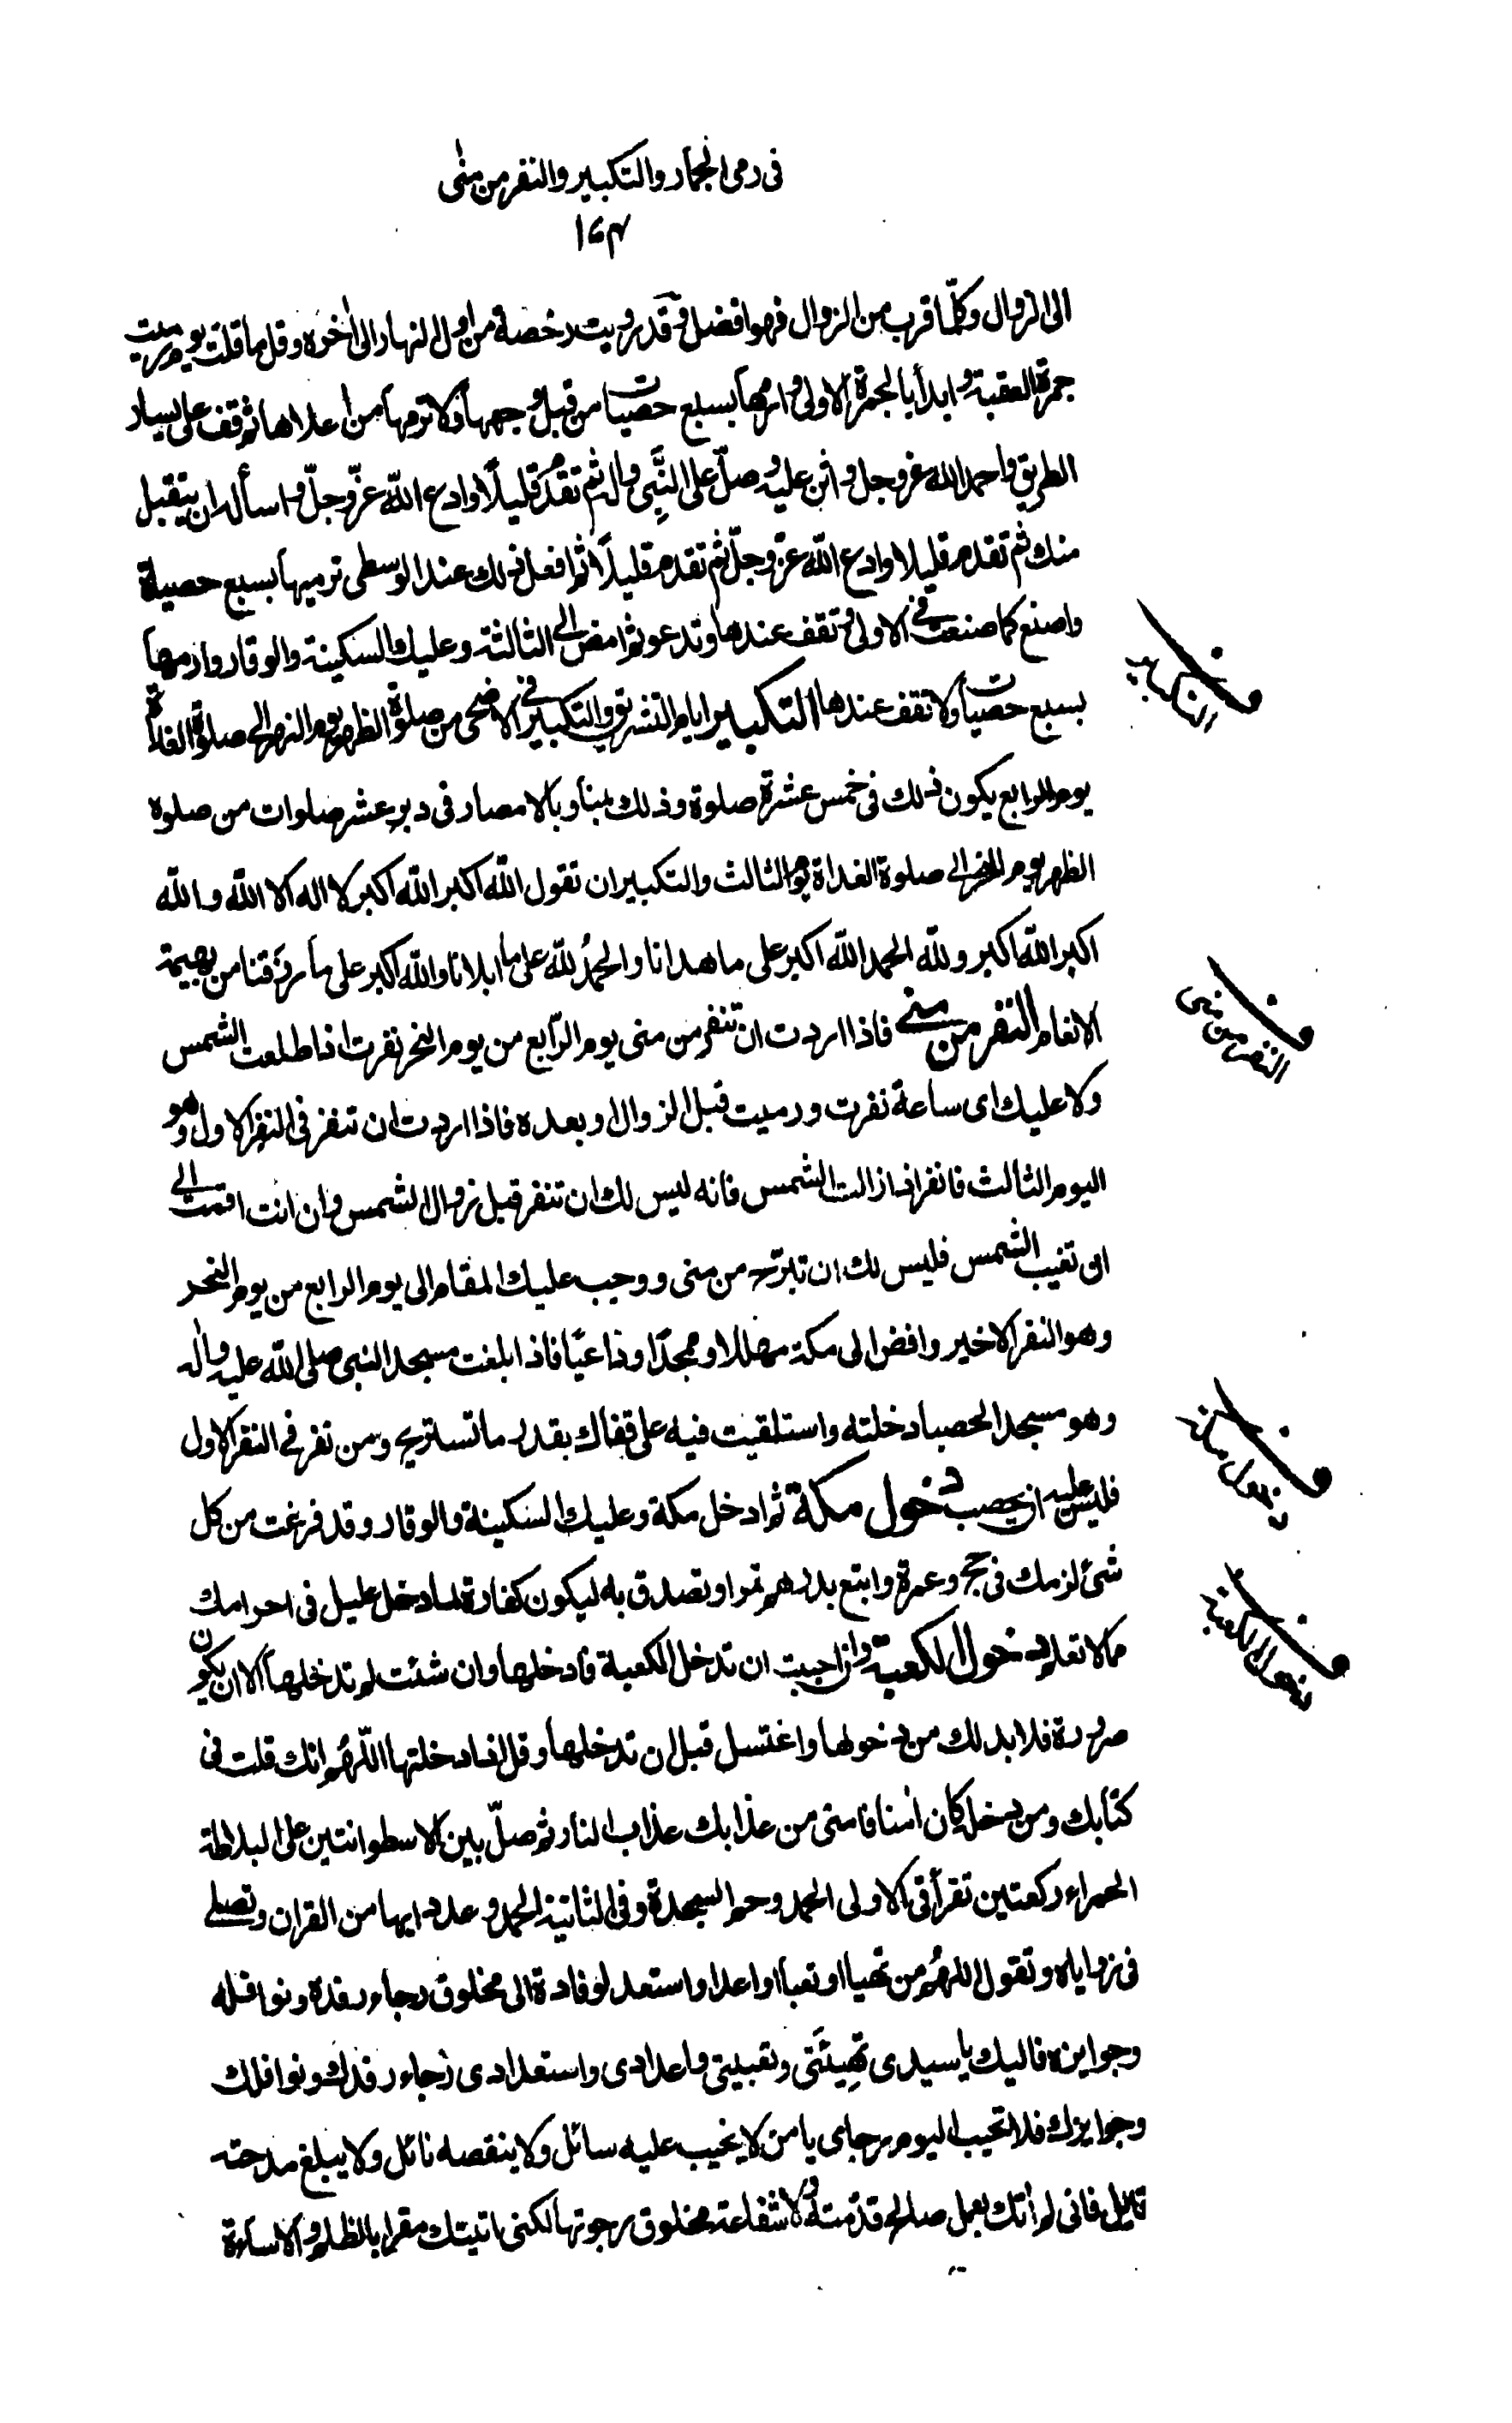 فى رمى الجمار والتكبير والنفر من منى
١٧٣
الى الزوال وكلّما قرب من الزوال فهو افضل وقد رويت رخصة من اول النهار الى اٰخره وقل ما قلت يوم رميت
جمرة العقبة وابدأ بالجمرة الاولى وارمها بسبع حصيات من قبل وجهها ولا ترمها من اعلاها ثم قف على يسار
الطريق واحمد الله عز وجل واثن عليه وصلّ على النَّبِى واله ثم تقدم قليلًا وادع اللّه عزّ وجلّ واسأله ان يتقبل
منك ثم تقدم قليلا وادع اللّه عزّ وجلّ ثم تقدم قليلًا ثم افعل ذلك عند الوسطى ترميها بسبع حصية
واصنع كما صنعت فى الاولى وتقف عندها وتدعو ثم امض الى الثالثة وعليك والسكينة والوقار وارمها
بسبع حصيات ولا تقف عندها التكبير ايام التشريق والتكبير فى الاضحى من صلوة الظهر يوم النحر الى صلوة الغداة
يوم الرابع يكون ذلك فى خمس عشرة صلوة وذلك بمنا وبالامصار فى دبر عشر صلوات من صلوه
الظهر يوم النحر الى صلوة الغداة يوم الثالث والتكبير ان تقول اللّه اكبر اللّه اكبر لا اله الا اللّه واللّه
اكبر اللّه اكبر وللّه الحمد اللّه اكبر على ما هدانا والحمدُ للّه على ما ابلانا واللّه اكبر على ما رزقنا من بهيمة
الانعام النفر من منى فاذا اردت ان تنفر من منى يوم الرّابع من يوم النحر نفرت اذا طلعت الشمس
ولا عليك اى ساعة نفرت ورميت قبل الزوال او بعده فاذا اردت ان تنفر فى النفر الاول وهو
اليوم الثالث فانفر اذا زالت الشمس فانه ليس لك ان تنفر قبل زوال الشمس وان انت اقمت الى
ان تغيب الشمس فليس لك ان تبرح من منى ووجب عليك المقام الى يوم الرابع من يوم النحر
وهو النفر الاخير وافض الى مكة مهللا وممجدًا وداعيًا فاذا بلغت مسجد النبى صلى اللّه عليه واٰله
وهو مسجد الحصبا دخلته واستلقيت فيه على قفاك بقدر ما تستريح ومن نفر فى النفر الاول
فليس عليه ان يحصب دخول مكة ثم ادخل مكة وعليك السكينة والوقار وقد فرغت من كل
شئ لزمك فى حج وعمرة وابتع بدرهم تمرا وتصدق به ليكون كفارة لما دخل عليك فى احرامك
مما لا تعلم دخول الكعبة وان احببت ان تدخل الكعبة فادخلها وان شئت لم تدخلها الا ان يكون
صرورة فلا بد لك من دخولها واغتسل قبل ان تدخلها وقل اذا دخلتها اللّهم انك قلت فى
كتابك ومن دخله كان اٰمنا فامنى من عذابك عذاب النار ثم صلّ بين الاسطوانتين على البلاطة
الحمراء ركعتين تقرأ فى الاولى الحمد وحم السجدة وفى الثانية الحمد وعدد ايها من القران وتصلى
فى زواياه وتقول اللهم من تهيا او تعبا او اعد او استعد لوفادة الى مخلوق رجاء رفده ونوافله
وجوايزه فاليك يا سيدى تهيئتى وتعبيتى واعدادى واستعدادى رجاء رفدك ونوافلك
وجوايزك فلا تخيب اليوم رجاى يا من لا يخيب عليه سائل ولا ينقصه نائل ولا يبلغ مدحته
قايل فانى لم اٰتك بعمل صالح قدّمته ولا شفاعة مخلوق رجوتها لكنى اتيتك مقرا بالظلم والاساءة
التكبير
النفر من منى
دخول مكة
دخول الكعبة